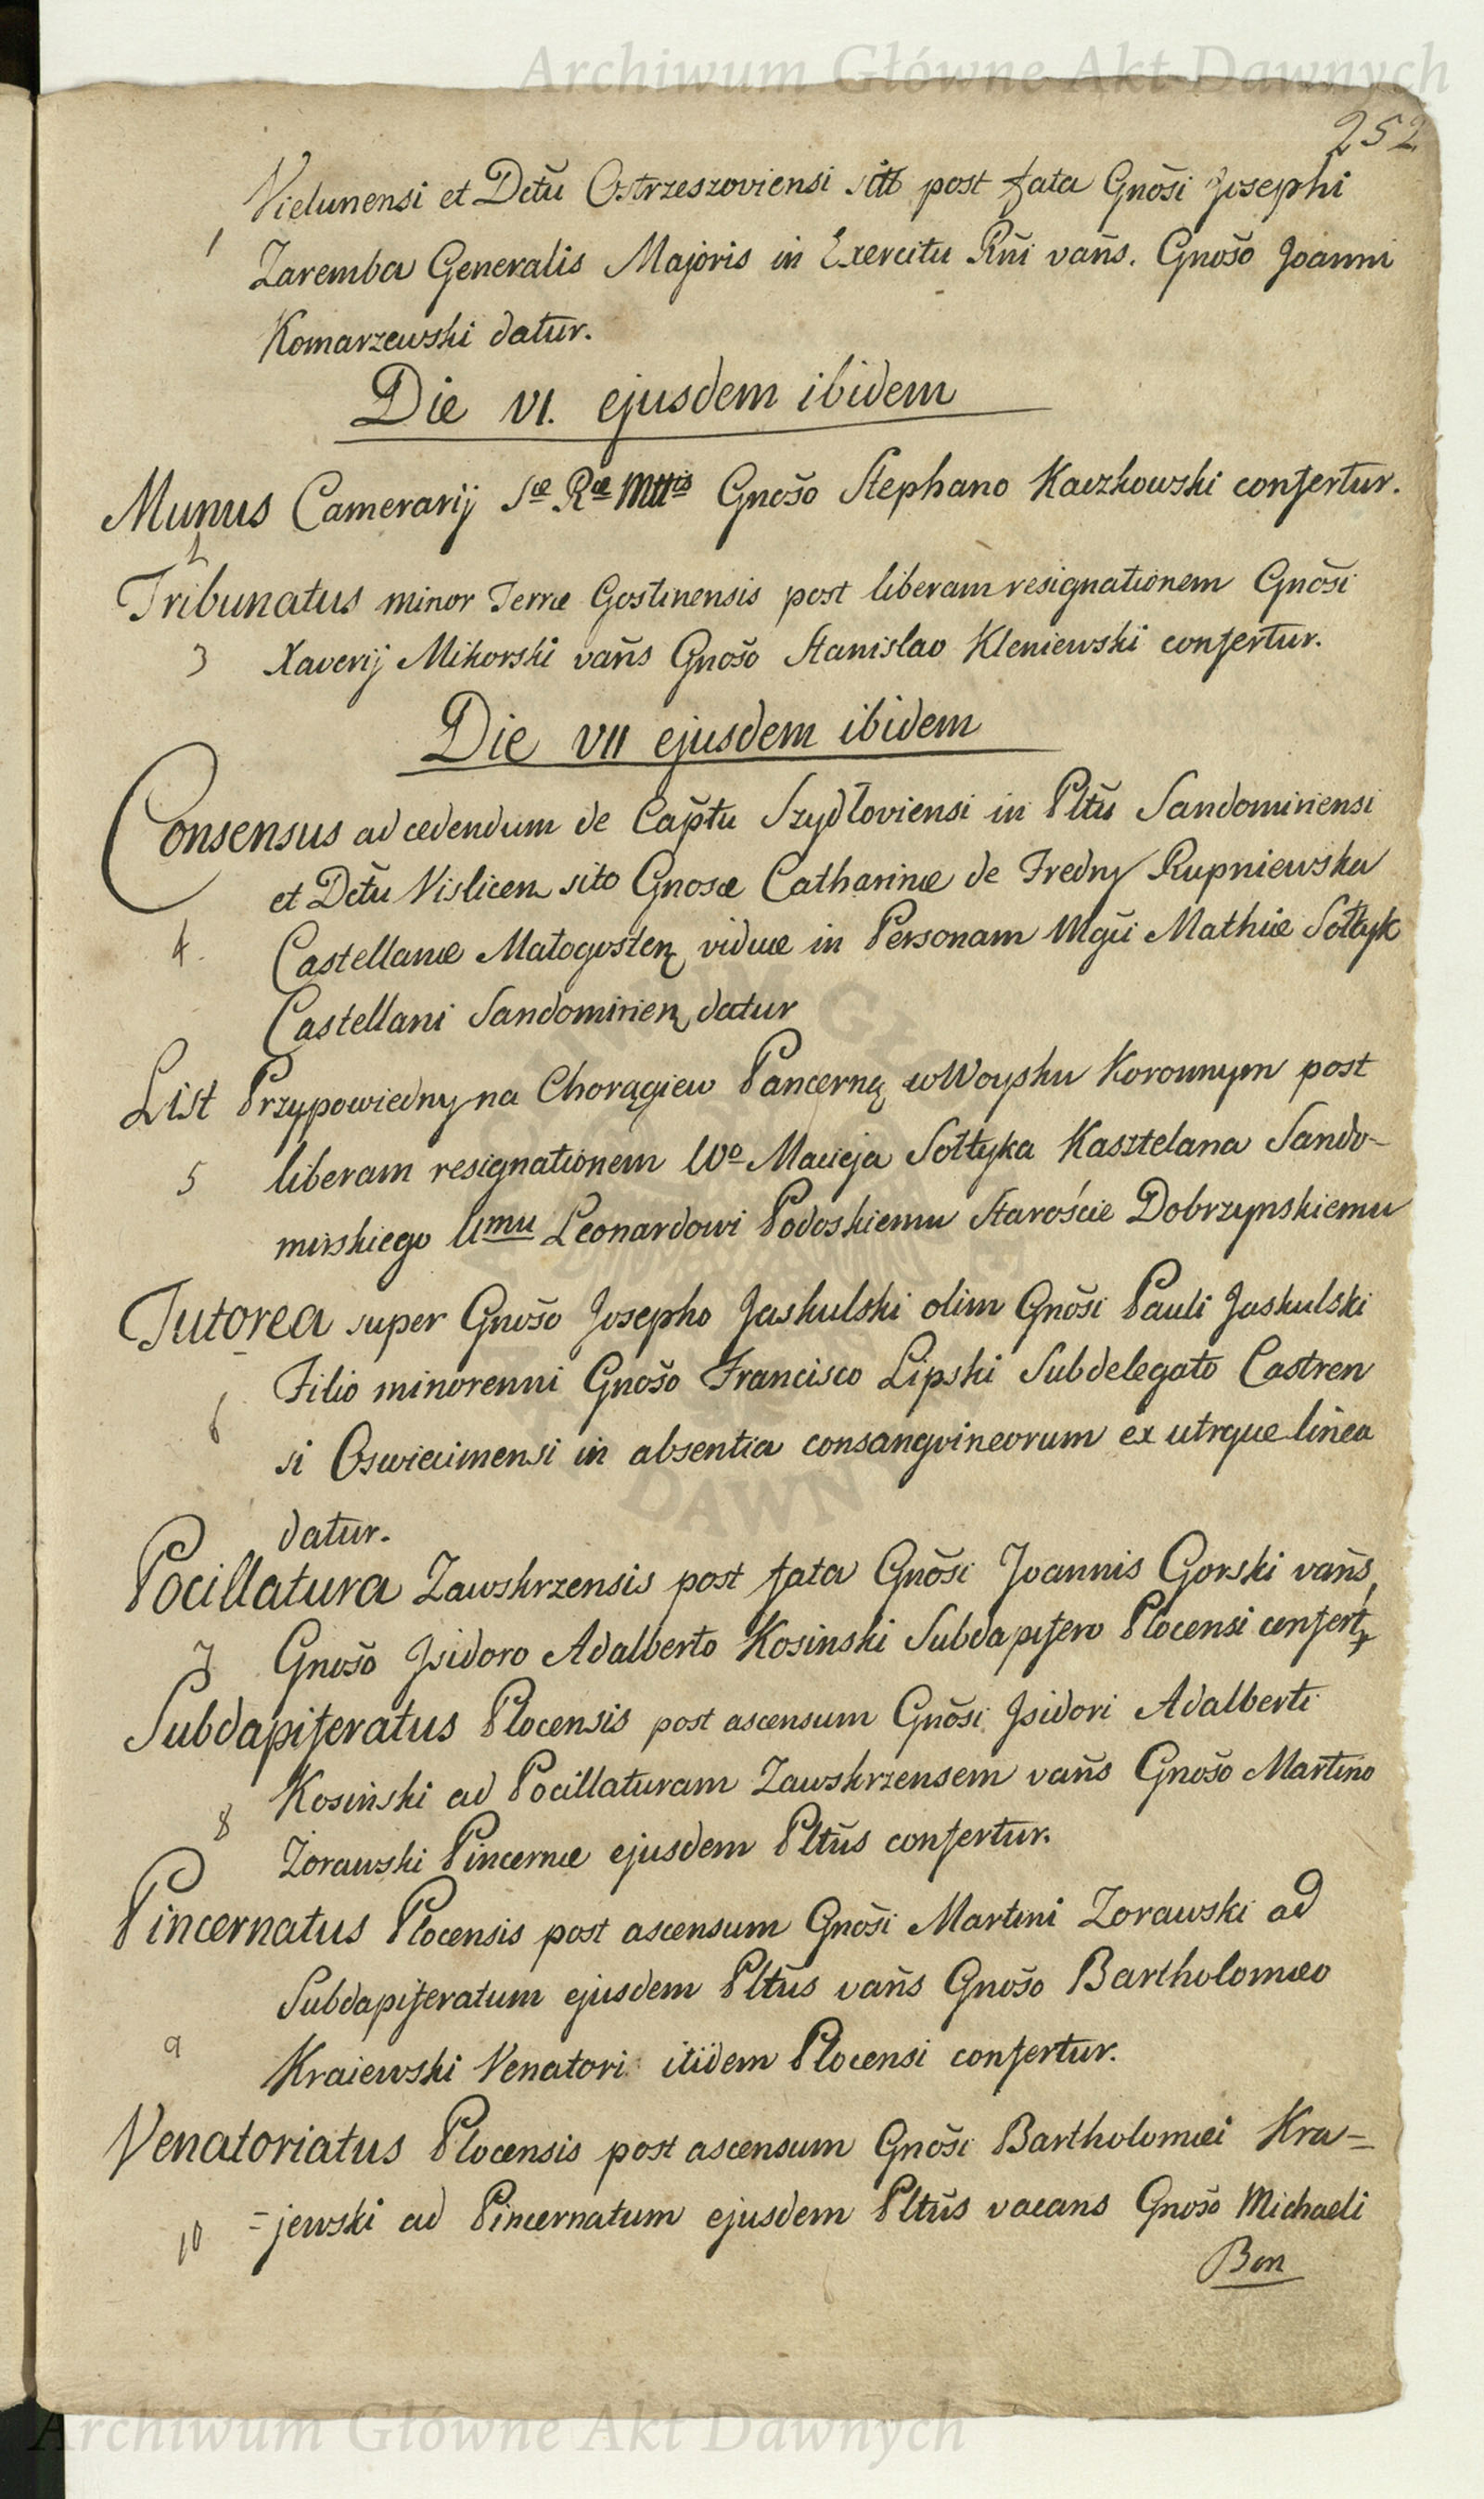 Archiwum Główne Akt Dawnych
252
Vielunensi et Dctũ Ostrzeszoviensi post fata Gnõsi Josephi
1 Zaremba Generalis Majoris in Exercitu Rñi vañs. Gnošo Joanni
Komarzewski datur.
Die VI. ejusdem ibidem
Munus Camerarij Sæ Ræ Mttis Gnošo Stephano Kaczkowski confertur.
2
Tribunatus minor Terræ Gostinensis post liberam resignationem Gnõsi
3 Xaverij Mikorski vañs Gnošo Stanislao Kleniewski confertur.
Die VII ejusdem ibidem
Consensus ad cedendum de Capt̃u Szydłoviensi in Pltũ Sandomiriensi
et Dctũ Vislicen sito Gnosæ Catharinæ de Fredry Rupniewska
4. Castellanæ Małogosten viduæ in Personam Mgũi Mathiæ Sołtyk
Castellani Sandomirien datur
List Przypowiedny na Chorągiew Pancerną w Woysku Koronnym post
5 liberam resignationem Wo Macieja Sołtyka Kasztelana Sando-
mirskiego Umu Leonardowi Podoskiemu Staroście Dobrzynskiemu
Tutorea super Gnošo Josepho Jaskulski olim Gnõsi Pauli Jaskulski
6 Filio minorenni Gnošo Francisco Lipski Subdelegato Castren
si Oswiecimensi in absentia consangvineorum ex utrque linea
datur.
Pocillatura Zawskrzensis post fata Gnõsi Joannis Gorski vañs,
7 Gnošo Isidoro Adalberto Kosinski Subdapifero Plocensi confert
Subdapiferatus Plocensis post ascensum Gnõsi Isidori Adalberti
8 Kosiński ad Pocillaturam Zawskrzensem vañs Gnošo Martino
Żorawski Pincernæ ejusdem Pltũs confertur.
Pincernatus Plocensis post ascensum Gnõsi Martini Zorawski ad
Subdapiferatum ejusdem Pltũs vañs Gnošo Bartholomæo
9 Kraiewski Venatori itidem Plocensi confertur.
Venatoriatus Plocensis post ascensum Gnõsi Bartholomæi Kra=
10 =jewski ad Pincernatum ejusdem Pltũs vacans Gnošo Michaeli
Bon
Archiwum Główne Akt Dawnych